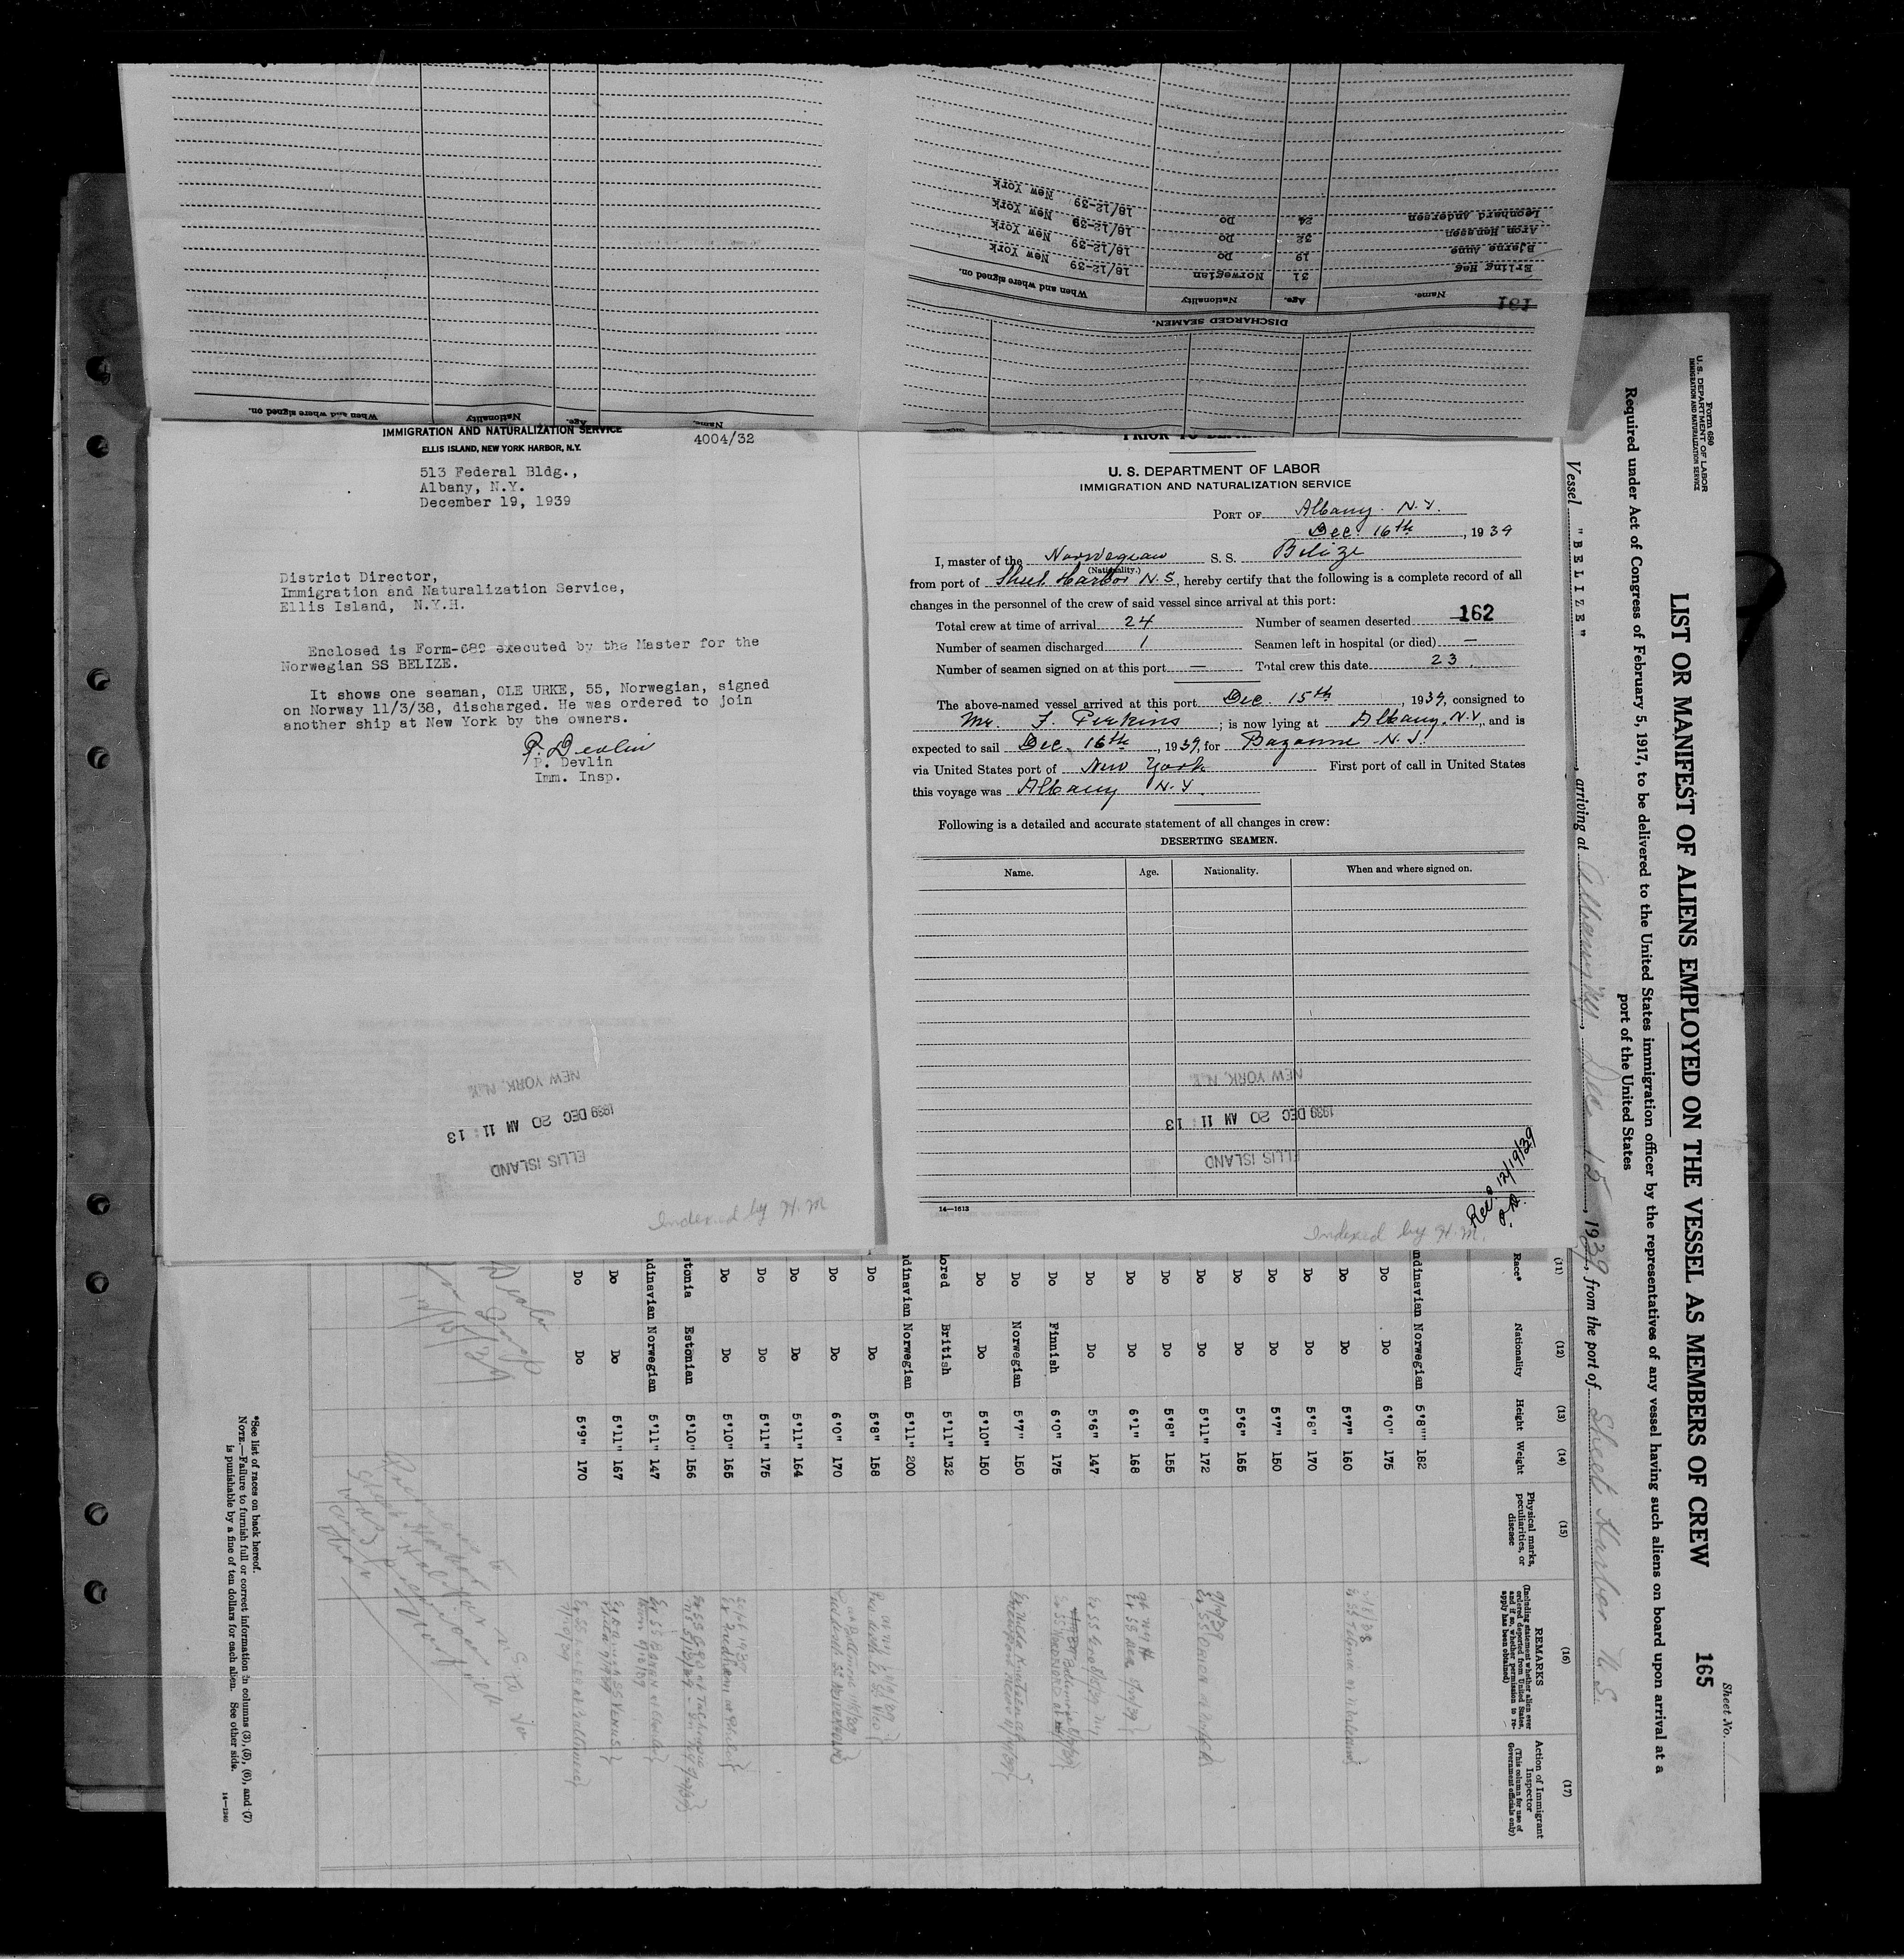 Name. Age. Nationality When and where signed on.
DISCHARGED SEAMEN.
131
Name. Age. Nationality When and where signed on.
Erling Hag 31 Norwegian 18/12-39 New York
Bjarne Aune 19 Do 18/12-39 New York
Aron Henssen 32 Do 18/12-39 New York
Leonhard Andersen 24 Do 18/12-39 New York
IMMIGRATION AND NATURALIZATION SERVICE
ELLIS ISLAND, NEW YORK HARBOR, N.Y.
4004/32
513 Federal Bldg.,
Albany, N.Y.
December 19, 1939
District Director,
Immigration and Naturalization Service,
Ellis Island, N.Y.H.
Enclosed is Form-689 executed by the Master for the
Norwegian SS BELIZE.
It shows one seaman, OLE URKE, 55, Norwegian, signed
on Norway 11/3/38, discharged. He was ordered to join
another ship at New York by the owners.
P. Devlin
P. Devlin
Imm. Insp.
NEW YORK, N.Y.
1939 DEC 20 AM 11:13
ELLIS ISLAND
Indexed by H.M
U. S. DEPARTMENT OF LABOR
IMMIGRATION AND NATURALIZATION SERVICE
PORT OF Albany. N.Y.
Dec. 16th, 1939
I, master of the Norwegian S. S. Belize
(Nationality.)
from port of Sheet Harbor N.S, hereby certify that the following is a complete record of all
changes in the personnel of the crew of said vessel since arrival at this port:
Total crew at time of arrival 24 Number of seamen deserted —
162
Number of seamen discharged 1 Seamen left in hospital (or died) —
Number of seamen signed on at this port — Total crew this date 23.
The above-named vessel arrived at this port Dec. 15th, 1939, consigned to
Mr. J. Perkins; is now lying at Albany. N.Y., and is
expected to sail Dec. 16th, 1939, for Bayonne N.J.
via United States port of New York First port of call in United States
this voyage was Albany N.Y.
Following is a detailed and accurate statement of all changes in crew:
DESERTING SEAMEN.
Name. Age. Nationality. When and where signed on.
NEW YORK, N.Y.
1939 DEC 20 AM 11:13
ELLIS ISLAND
Rec. 12/19/39
14—1613
Indexed by H.M.
Form 680
U. S. DEPARTMENT OF LABOR
IMMIGRATION AND NATURALIZATION SERVICE
Sheet No.
165
LIST OR MANIFEST OF ALIENS EMPLOYED ON THE VESSEL AS MEMBERS OF CREW
Required under Act of Congress of February 5, 1917, to be delivered to the United States immigration officer by the representatives of any vessel having such aliens on board upon arrival at a
port of the United States
Vessel "BELIZE", arriving at Albany NY, Dec 15, 1939, from the port of Sheet Harbor N.S.
(11) (12) (13) (14) (15) (16) (17)
Race* Nationality Height Weight Physical marks, peculiarities, or disease REMARKS (Including statement whether alien ever ordered deported from United States, and if so, whether permission to re-apply has been obtained) Action of Immigrant Inspector (This column for use of Government officials only)
dinavian Norwegian 5'8"" 182
Do Do 6'0" 175
Do Do 5'7" 160
Do Do 5'8" 170
Do Do 5'7" 150
Do Do 5'6" 165
Do Do 5'11" 172
Do Do 5'8" 155
Do Do 6'1" 168
Do Do 5'6" 147
Do Finnish 6'0" 175
Do Norwegian 5'7" 150
Do Do 5'10" 150
lored British 5'11" 132
dinavian Norwegian 5'11" 200
Do Do 5'8" 158
Do Do 6'0" 170
Do Do 5'11" 164
Do Do 5'11" 175
Do Do 5'10" 165
stonia Estonian 5'10" 156
dinavian Norwegian 5'11" 147
Do Do 5'11" 167
Do Do 5'9" 170
*See list of races on back hereof.
NOTE.—Failure to furnish full or correct information in columns (3), (5), (6), and (7)
is punishable by a fine of ten dollars for each alien. See other side.
14—1240